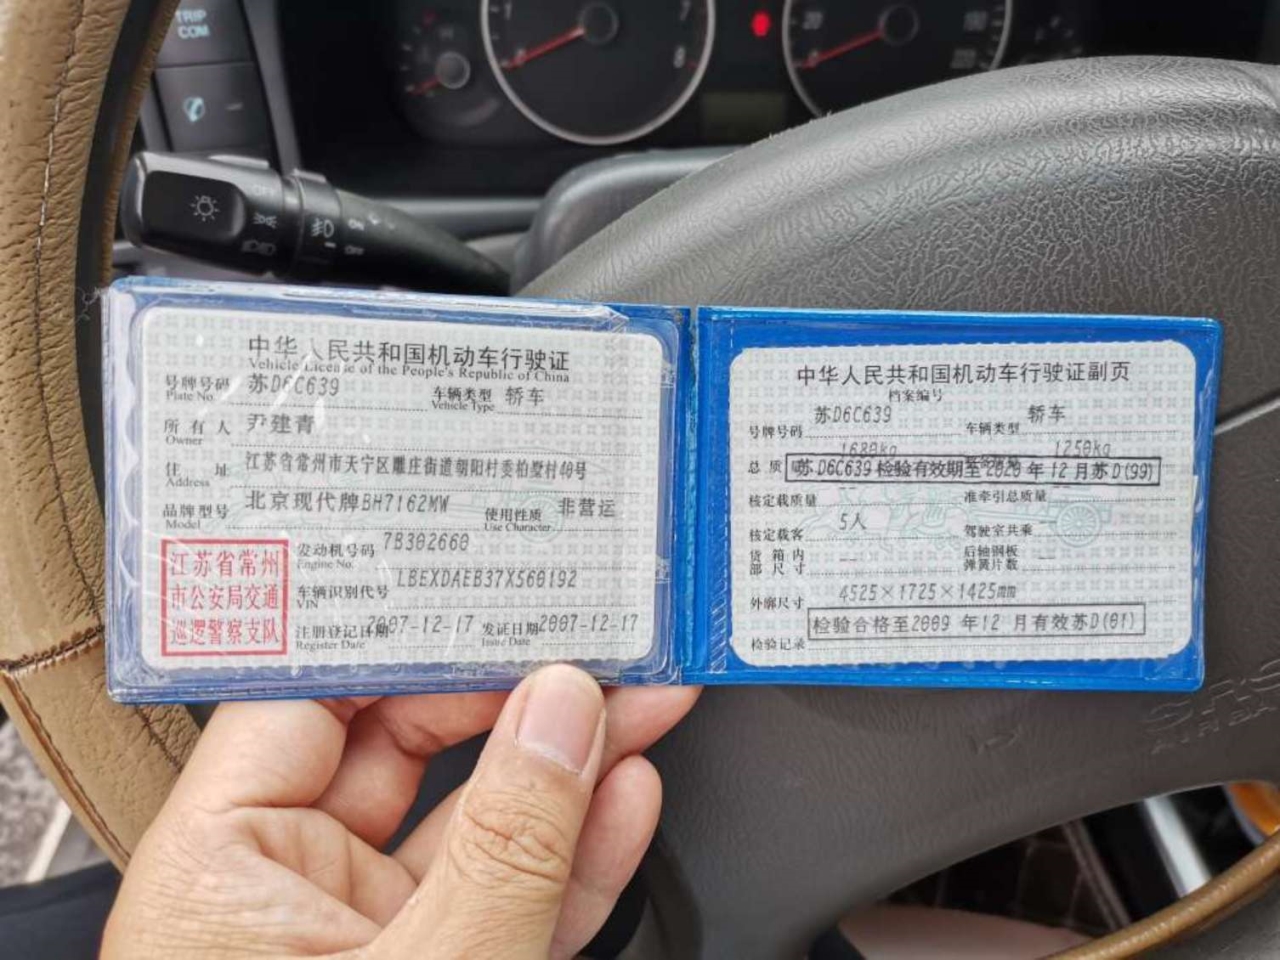 TRIP
COM
OFF
ON
OFF
中华人民共和国机动车行驶证
Vehicle License of the People's Republic of China
号牌号码 苏D6C639 车辆类型 轿车
Plate No. Vehicle Type
所有人 尹建青
Owner
住址 江苏省常州市天宁区雕庄街道朝阳村委柏墅村40号
Address
品牌型号 北京现代牌BH7162MW 使用性质 非营运
Model Use Character
江苏省常州
市公安局交通
巡逻警察支队
发动机号码 7B302660
Engine No.
车辆识别代号 LBEXDAEB37X560192
VIN
注册登记日期 2007-12-17 发证日期 2007-12-17
Register Date Issue Date
中华人民共和国机动车行驶证副页
档案编号
号牌号码 苏D6C639 车辆类型 轿车
总质 1680kg 1250kg
苏D6C639检验有效期至2020年12月苏D(99)
核定载质量 -- 准牵引总质量 --
核定载客 5人 驾驶室共乘 --
货箱内部尺寸 -- 后轴钢板弹簧片数 --
外廓尺寸 4525×1725×1425
检验合格至2009年12月有效苏D(01)
检验记录